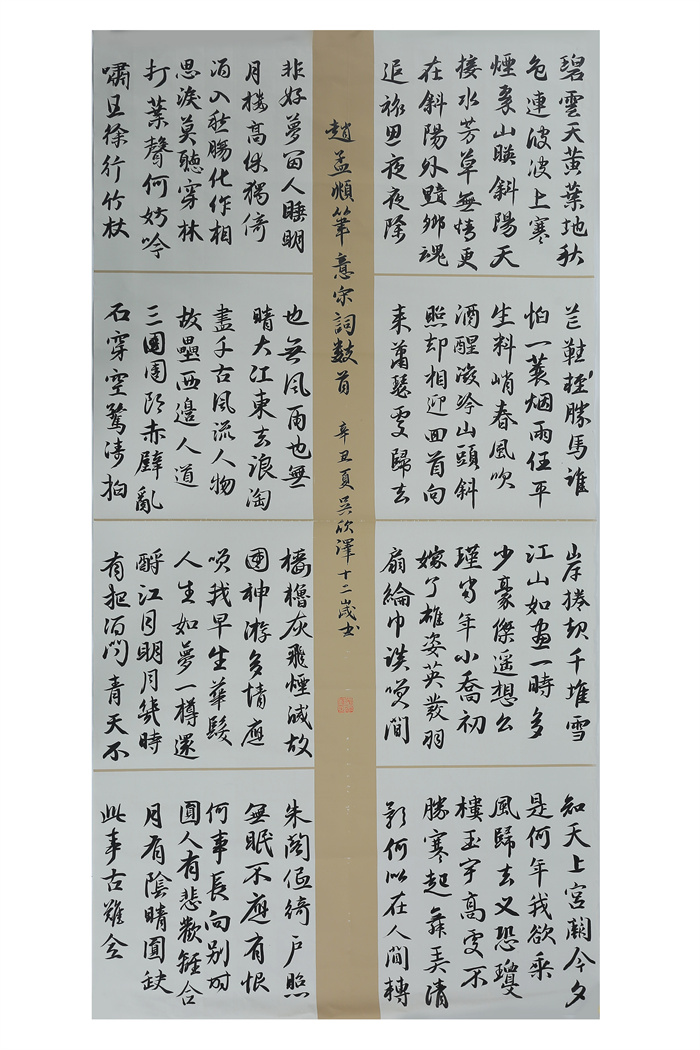 碧雲天黃葉地秋
色連波波上寒
煙翠山映斜陽天
接水芳草無情更
在斜陽外黯鄉魂
追旅思夜夜除
非好夢留人睡明
月樓高休獨倚
酒入愁腸化作相
思淚莫聽穿林
打葉聲何妨吟
嘯且徐行竹杖
芒鞋輕勝馬誰
怕一蓑烟雨任平
生料峭春風吹
酒醒微冷山頭斜
照却相迎回首向
來蕭瑟處歸去
也無風雨也無
晴大江東去浪淘
盡千古風流人物
故壘西邊人道
三國周郎赤壁亂
石穿空驚濤拍
岸捲起千堆雪
江山如畫一時多
少豪傑遙想公
瑾當年小喬初
嫁了雄姿英發羽
扇綸巾談笑間
檣櫓灰飛煙滅故
國神遊多情應
笑我早生華髮
人生如夢一樽還
酹江月明月幾時
有把酒問青天不
知天上宮闕今夕
是何年我欲乘
風歸去又恐瓊
樓玉宇高處不
勝寒起舞弄清
影何似在人間轉
朱閣低綺戶照
無眠不應有恨
何事長向別時
圓人有悲歡離合
月有陰晴圓缺
此事古難全
趙孟頫筆意宋詞數首
辛丑夏吳欣澤十二歲書